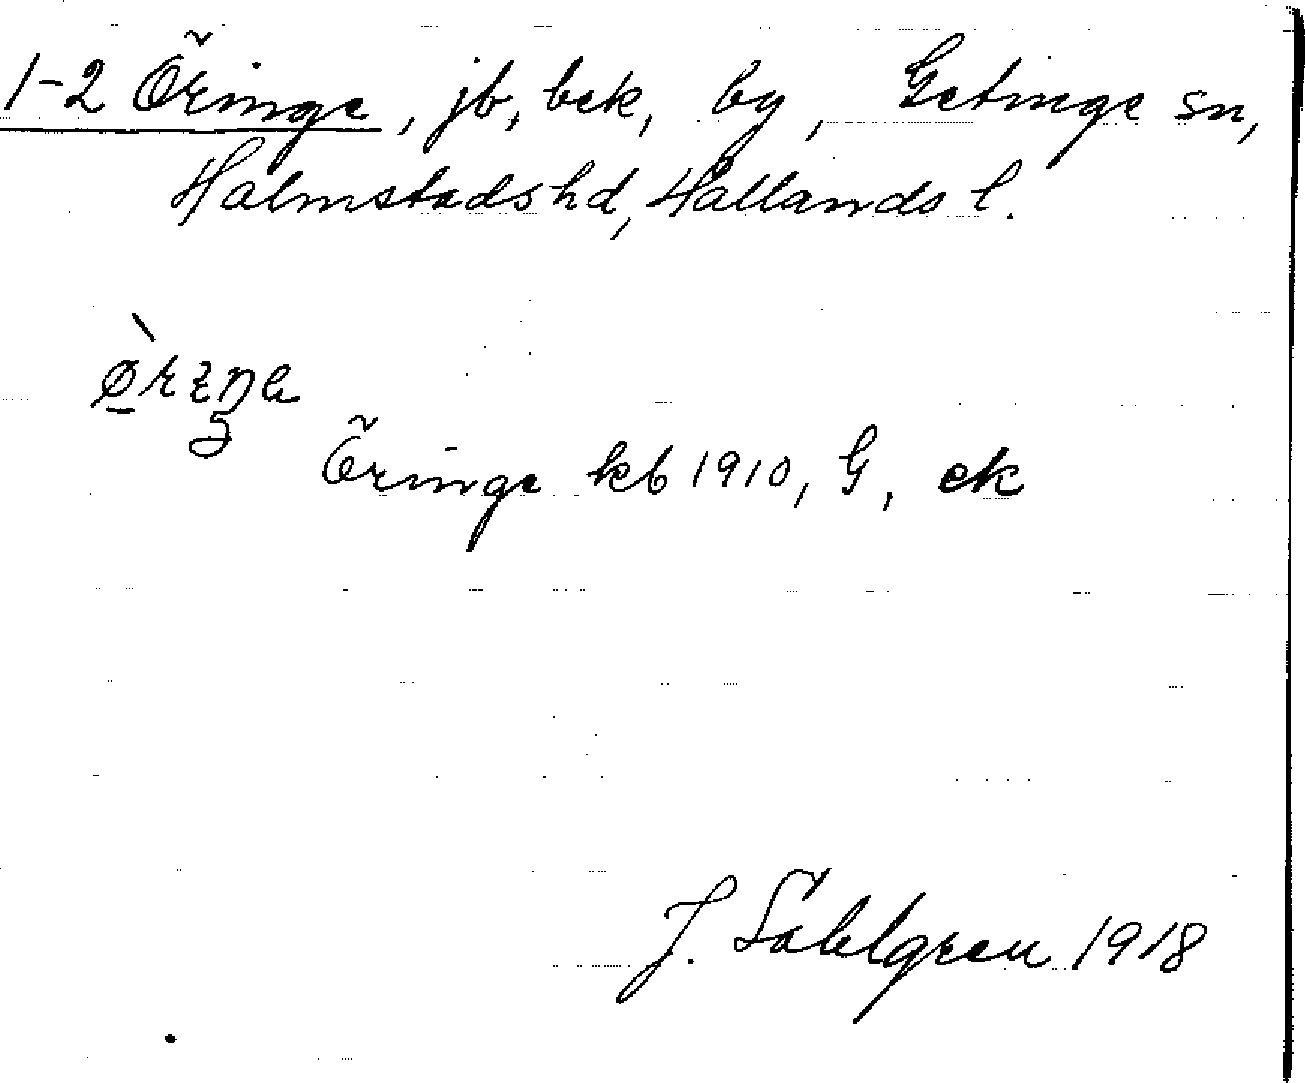 1-2 Öringe, jb, bek, by, Getinge sn,
Halmstads hd, Hallands l.
Öringe kb 1910, G, ek
J. Sahlgren 1918